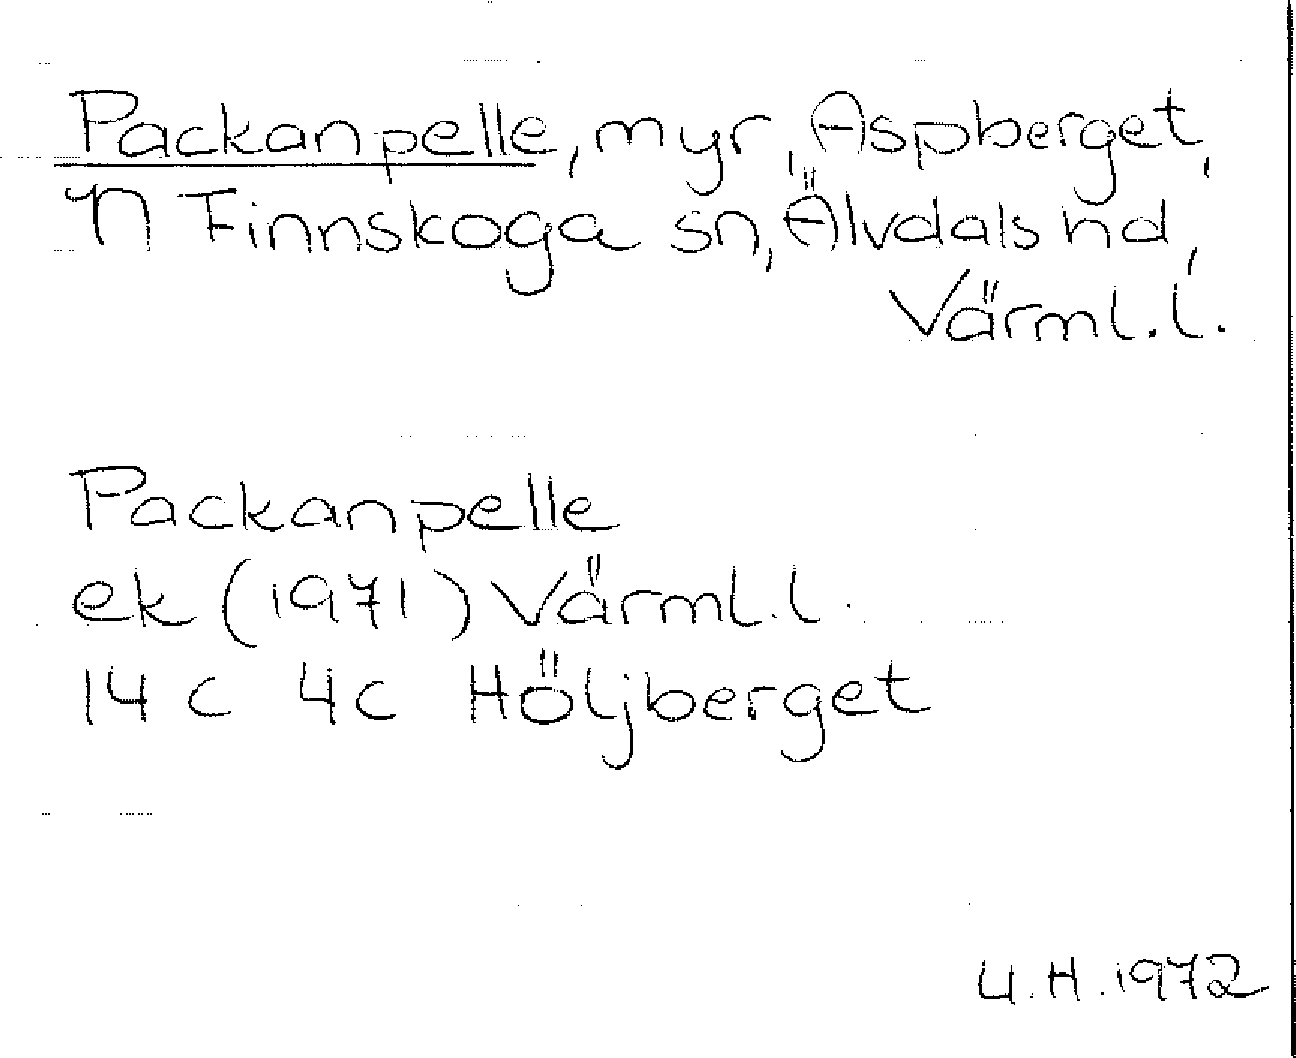 Packanpelle, myr, Aspberget,
N Finnskoga sn, Älvdals hd,
Värml. l.
Packanpelle
ek (1971) Värml. l.
14 c 4c Höljberget
U.H. 1972